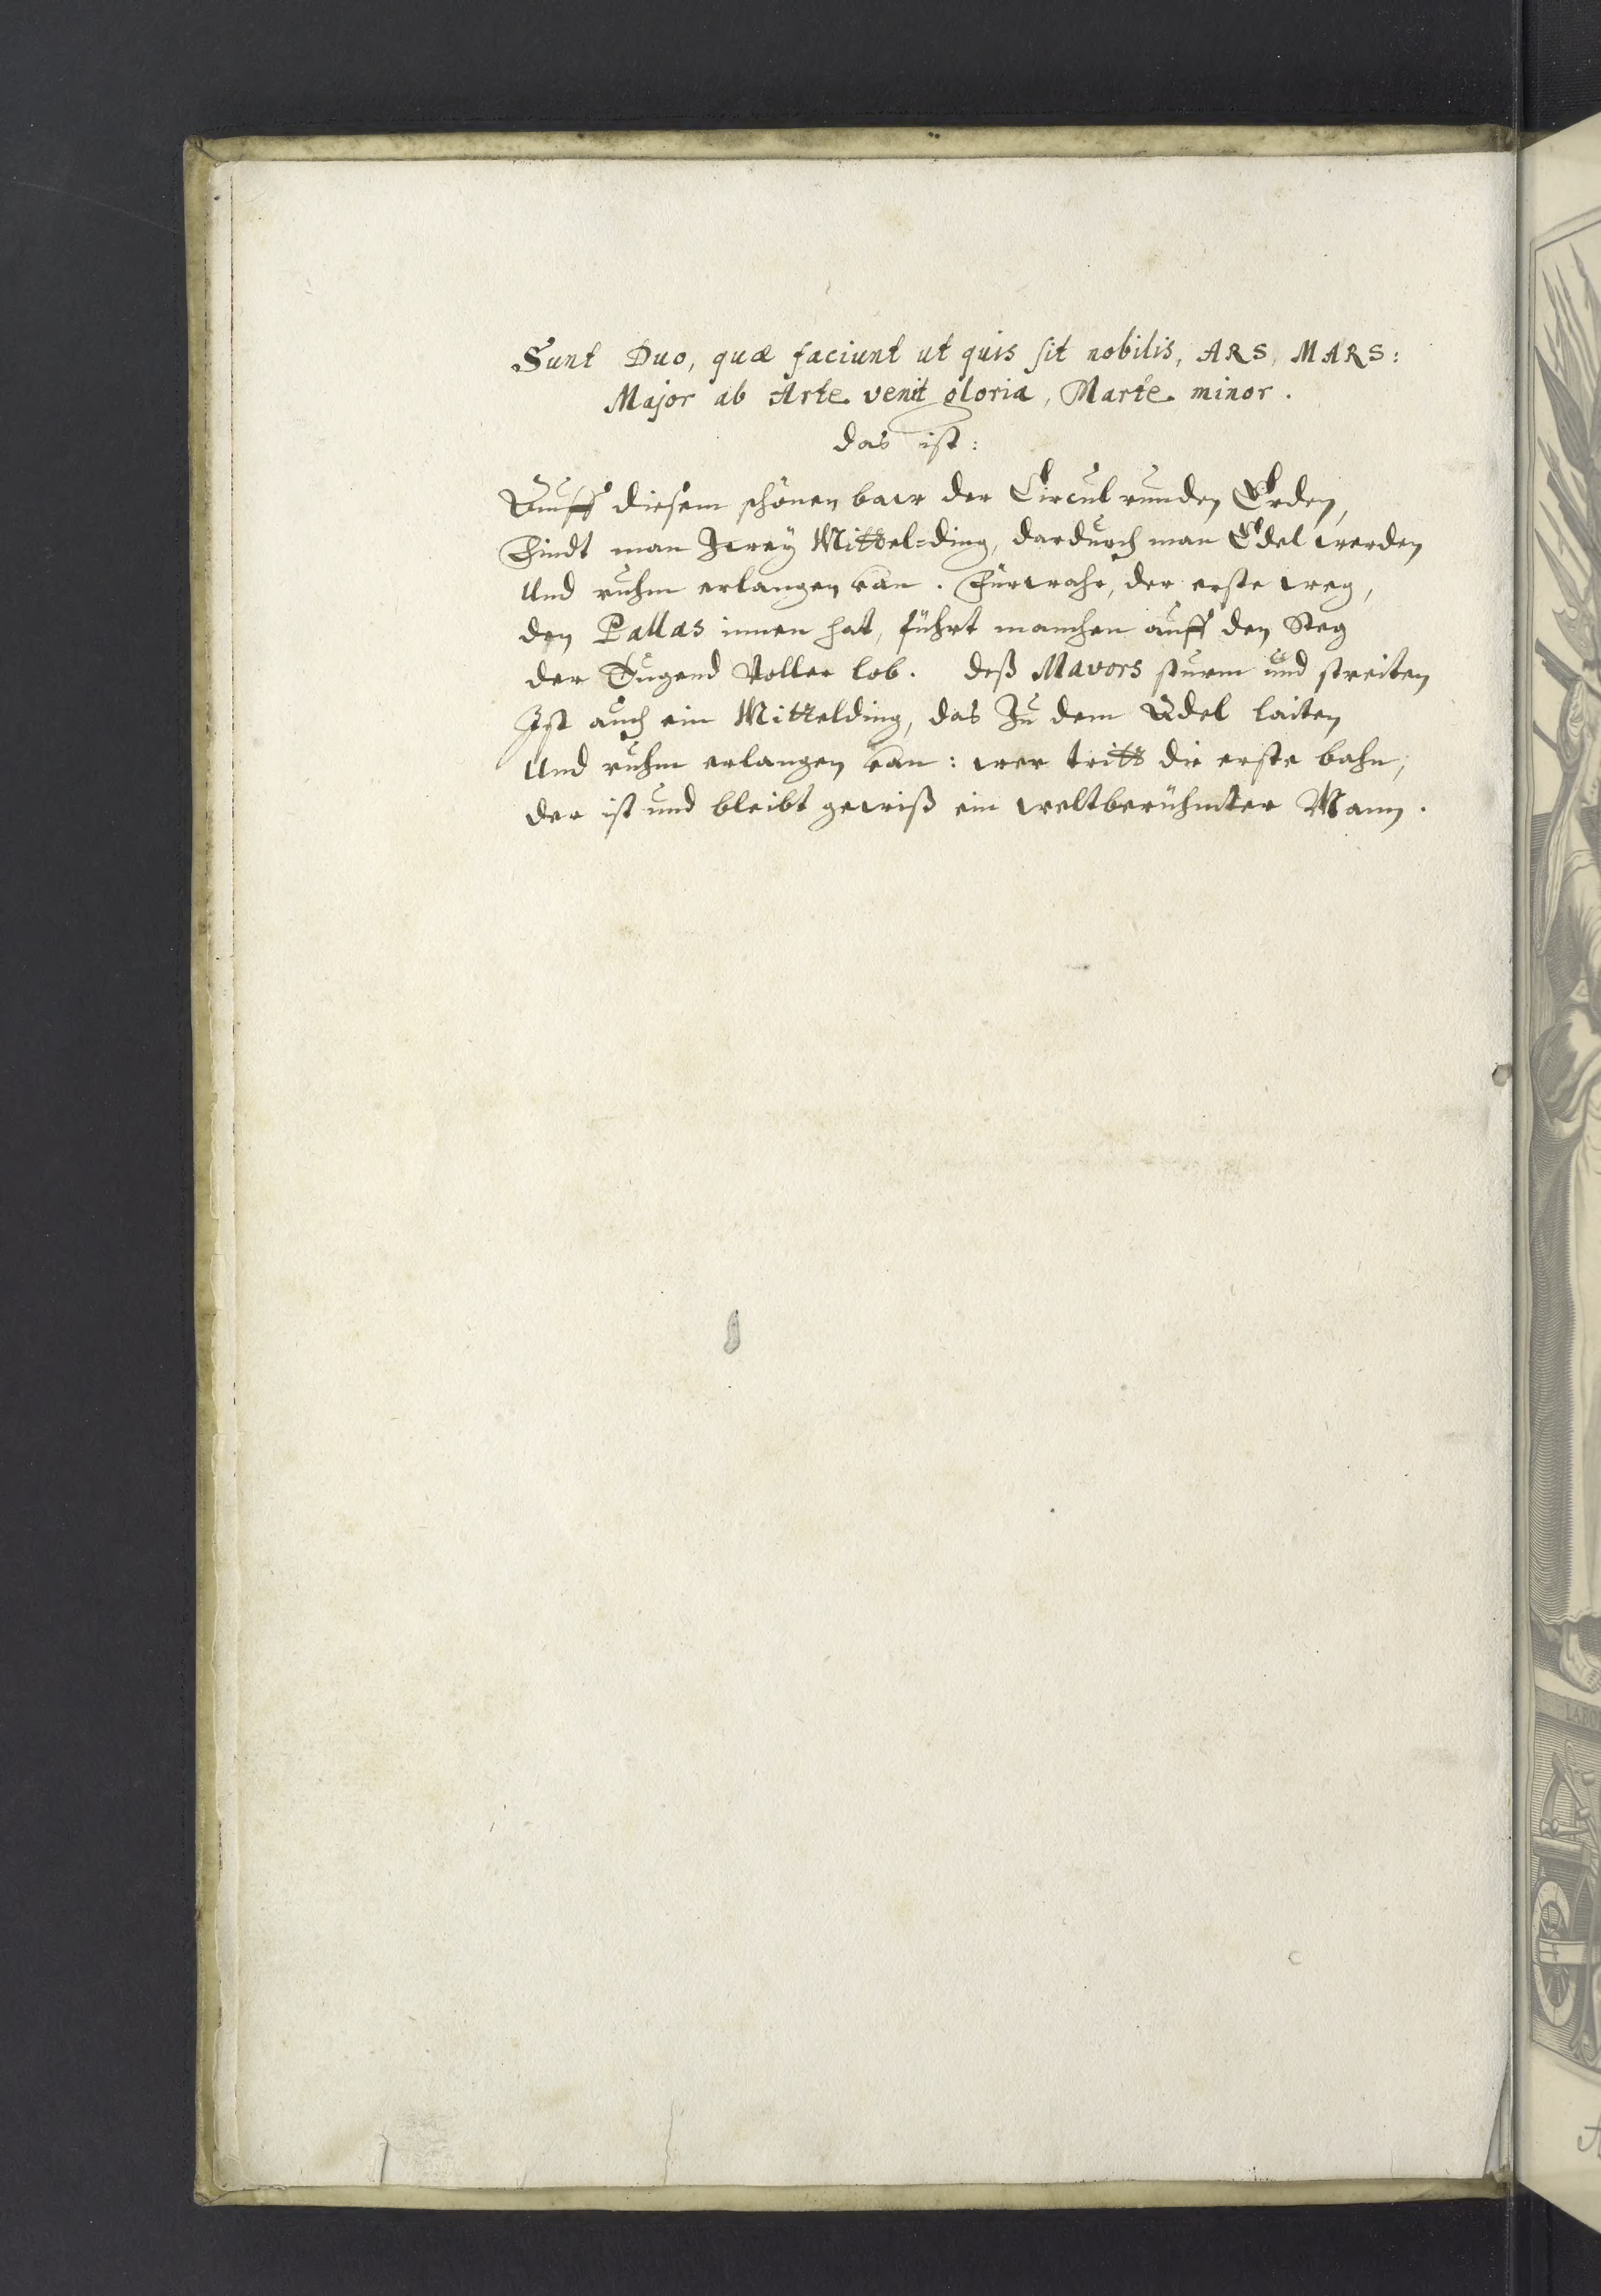 Sunt Duo, quæ faciunt ut quis sit nobilis, ARS, MARS:
Major ab Arte venit gloria, Marte minor.
das ist:
Auff diesem schönen baw der Circul runden Erden,
Findt man Zweÿ Mittel=ding, dardurch man Edel werden
Und ruhm erlangen kan. Fürwahr, der erste weg,
den Pallas innen hat, führt manchen auff den Steg
der Tugend Voller lob. deß Mavors sturm und streiten
Ist auch ein Mittelding, das Zu dem Adel laiten
Und ruhm erlangen kan: wer tritt die erste bahn,
der ist und bleibt gewiß ein weltberühmter Mann.